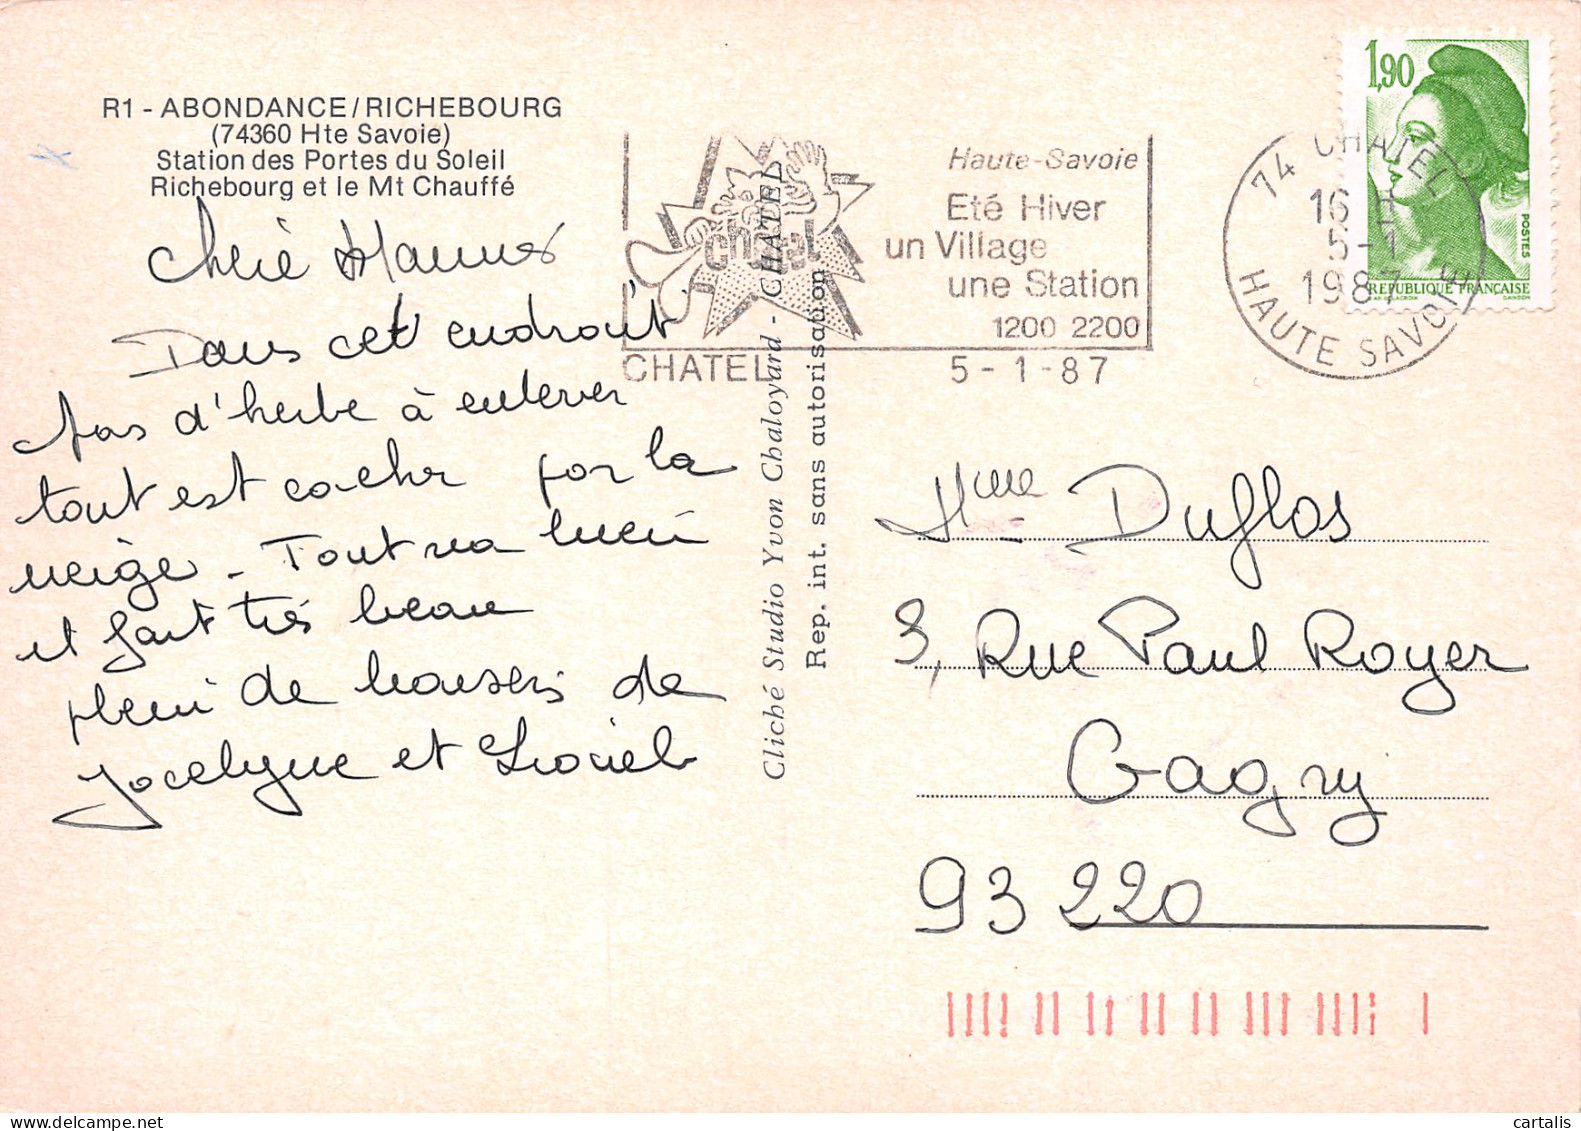 R1 - ABONDANCE/RICHEBOURG
(74360 Hte Savoie)
Station des Portes du Soleil
Richebourg et le Mt Chauffé
chérie
Dans cet endroit
pas d'herbe à enlever
tout est cacher par la
neige - Tout va bien
et fait très beau
plein de baisers de
Jocelyne et Lionel
Cliché Studio Yvon Chaloyard - CHATEL
Rep. int. sans autorisation
chatel
CHATEL
Haute-Savoie
Eté Hiver
un Village
une Station
1200 2200
5-1-87
74 CHATEL
16 H
5-1
1987
HAUTE SAVOIE
1,90
POSTES
REPUBLIQUE FRANÇAISE
GANDON
Mme Duflos
3, Rue Paul Royer
Gagny
93 220
cartalis